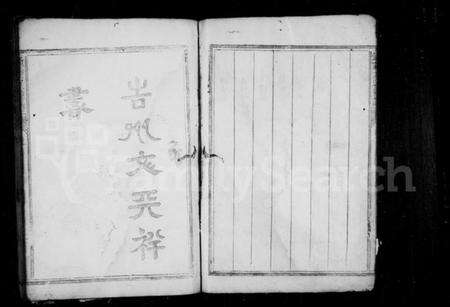 吉州文天祥
書
FamilySearch